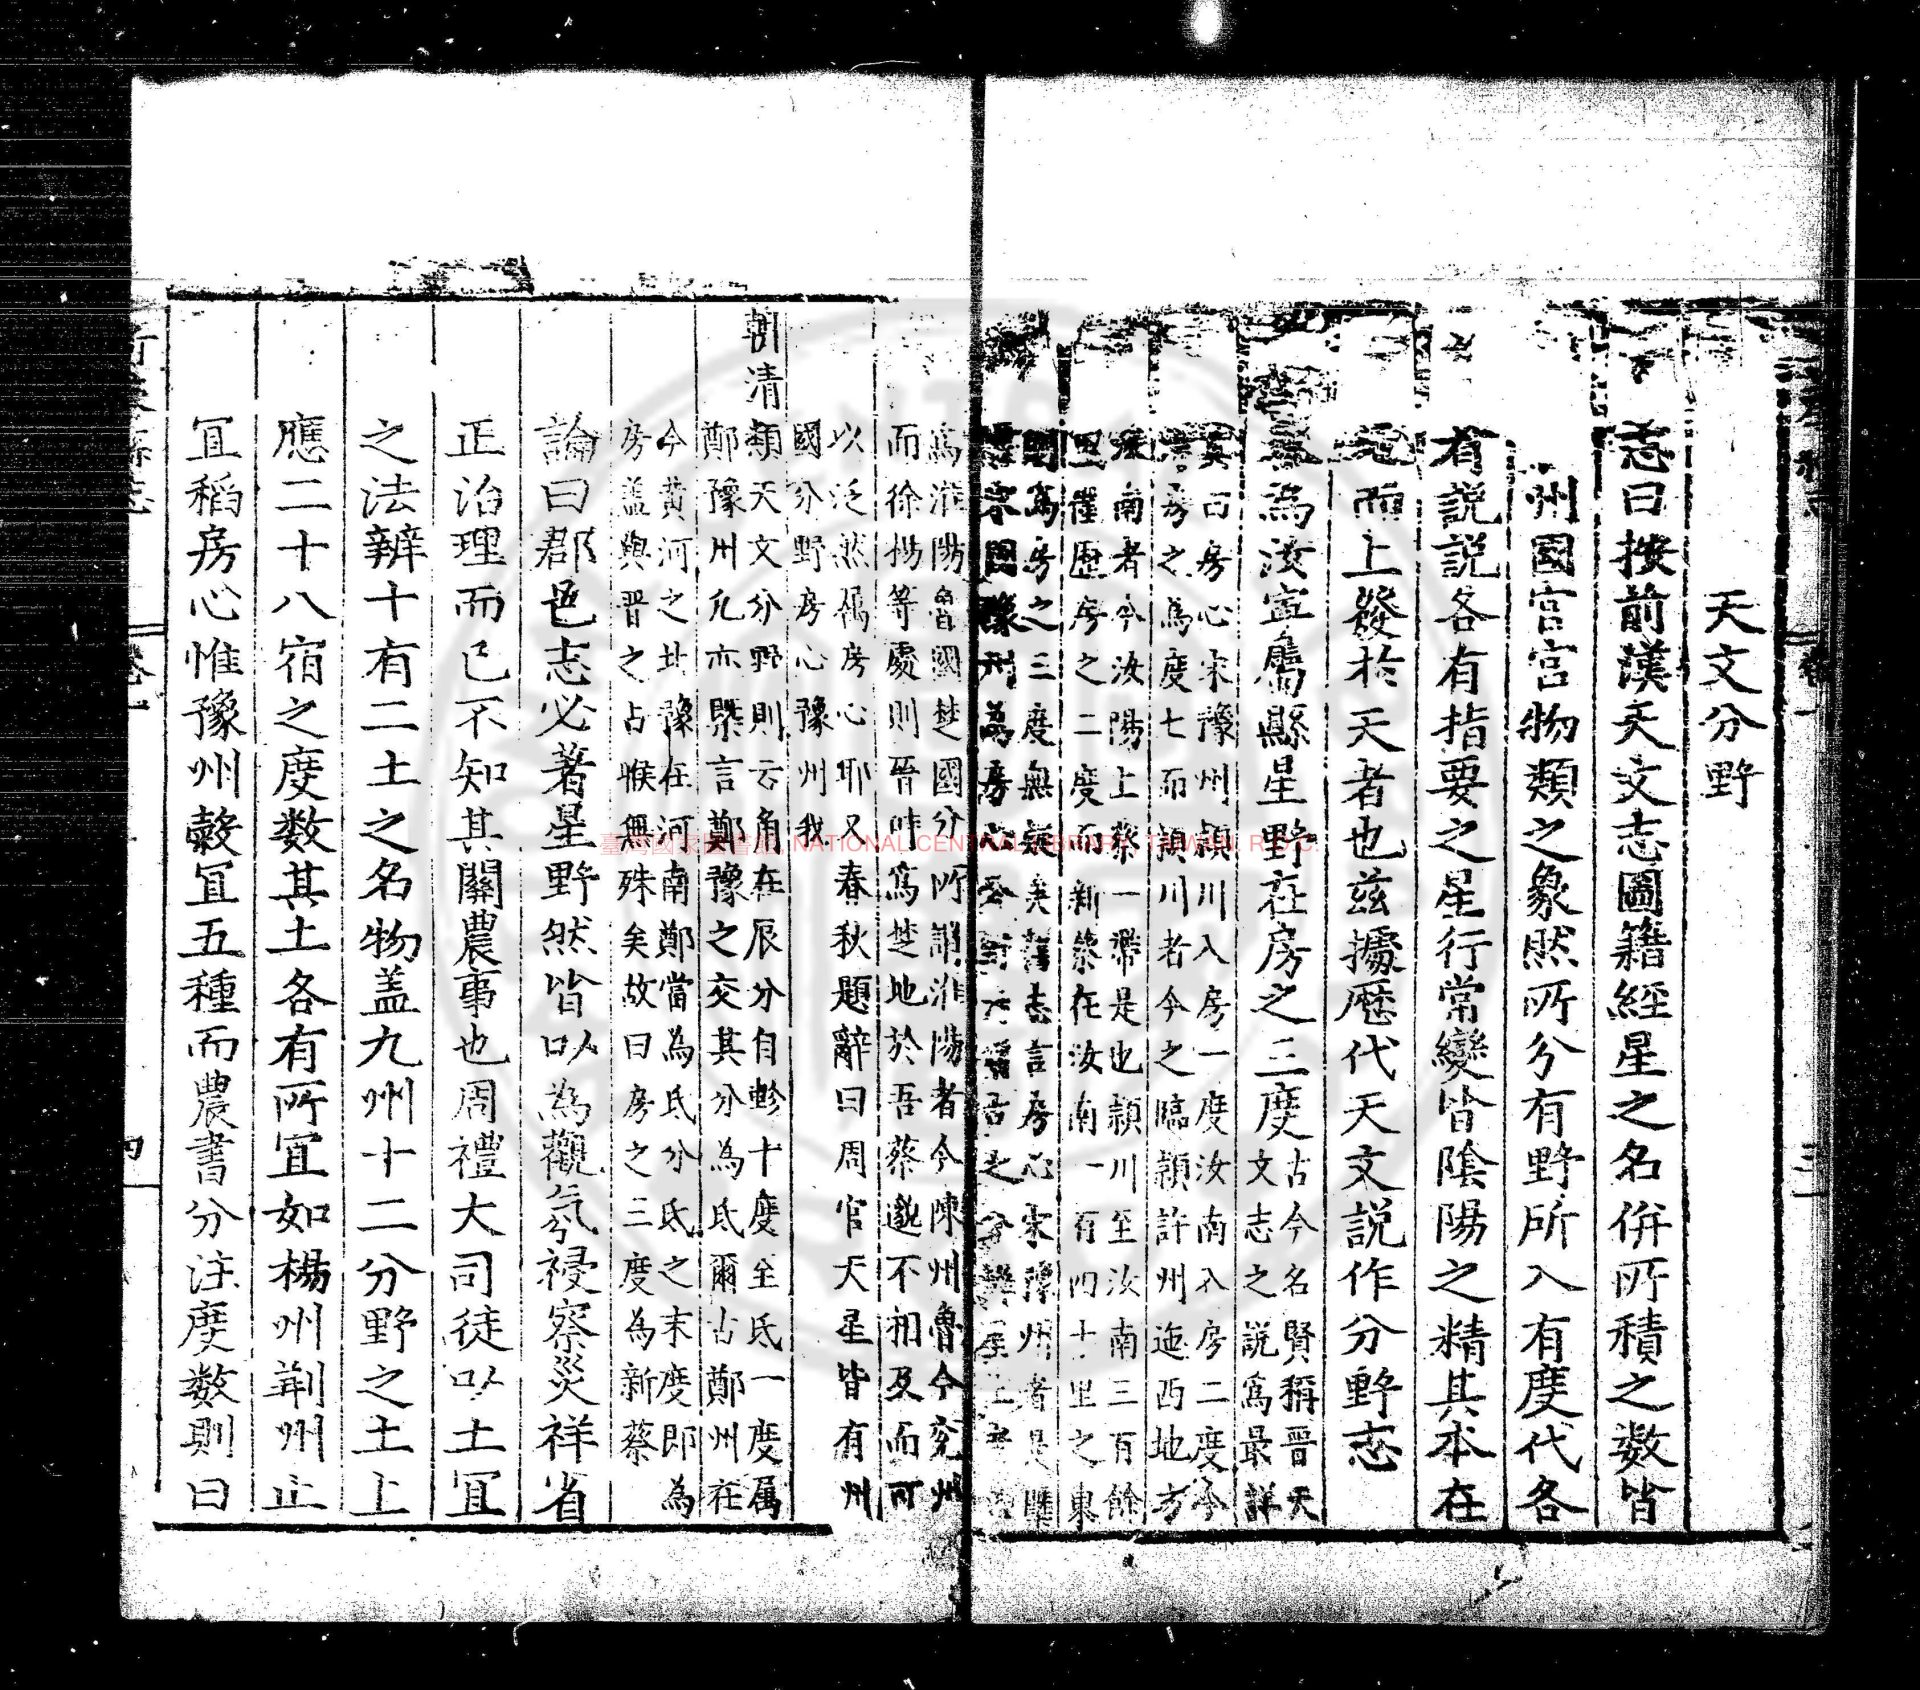 天文分野
志曰按前漢天文志圖籍經星之名併所積之數皆
州國宮宮物類之象然所分有野所入有度代各
有說說各有指要之星行常變皆陰陽之精其本在
地而上發於天者也茲據歷代天文說作分野志
為汝寧屬縣星野在房之三度
古今名賢稱晉天
文志之說為最詳
其曰房心宋豫州潁川入房一度汝南入房二度今
房之為度七而潁川者今之臨潁許州迤西地方
汝南者今汝陽上蔡一帶是也潁川至汝南三百餘
里僅歷房之二度而新蔡在汝南一百四十里之東
則為房之三度無疑矣舊志言房心宋豫州者是槩
宋國豫州為房心
為淮陽魯國楚國分所謂淮陽者今陳州魯今兗州
而徐揚等處則晉時為楚地於吾蔡邈不相及而可
以泛然屬房心耶又春秋題辭曰周官天星皆有州
國分野房心豫州我
朝清類天文分野則云角在辰分自軫十度至氐一度属
鄭豫州凡亦槩言鄭豫之交其分為氐爾古鄭州在
今黃河之北豫在河南鄭當為氐分氐之末度即為
房盖與晋之占候無殊矣故曰房之三度為新蔡
論曰郡邑志必著星野然皆以為觀氛祲察災祥省
正治理而已不知其關農事也周禮大司徒以土宜
之法辨十有二土之名物盖九州十二分野之土上
應二十八宿之度数其土各有所宜如楊州荆州止
宜稻房心惟豫州穀宜五種而農書分注度数則曰
臺灣國家圖書館 NATIONAL CENTRAL LIBRARY, TAIWAN, R.O.C.